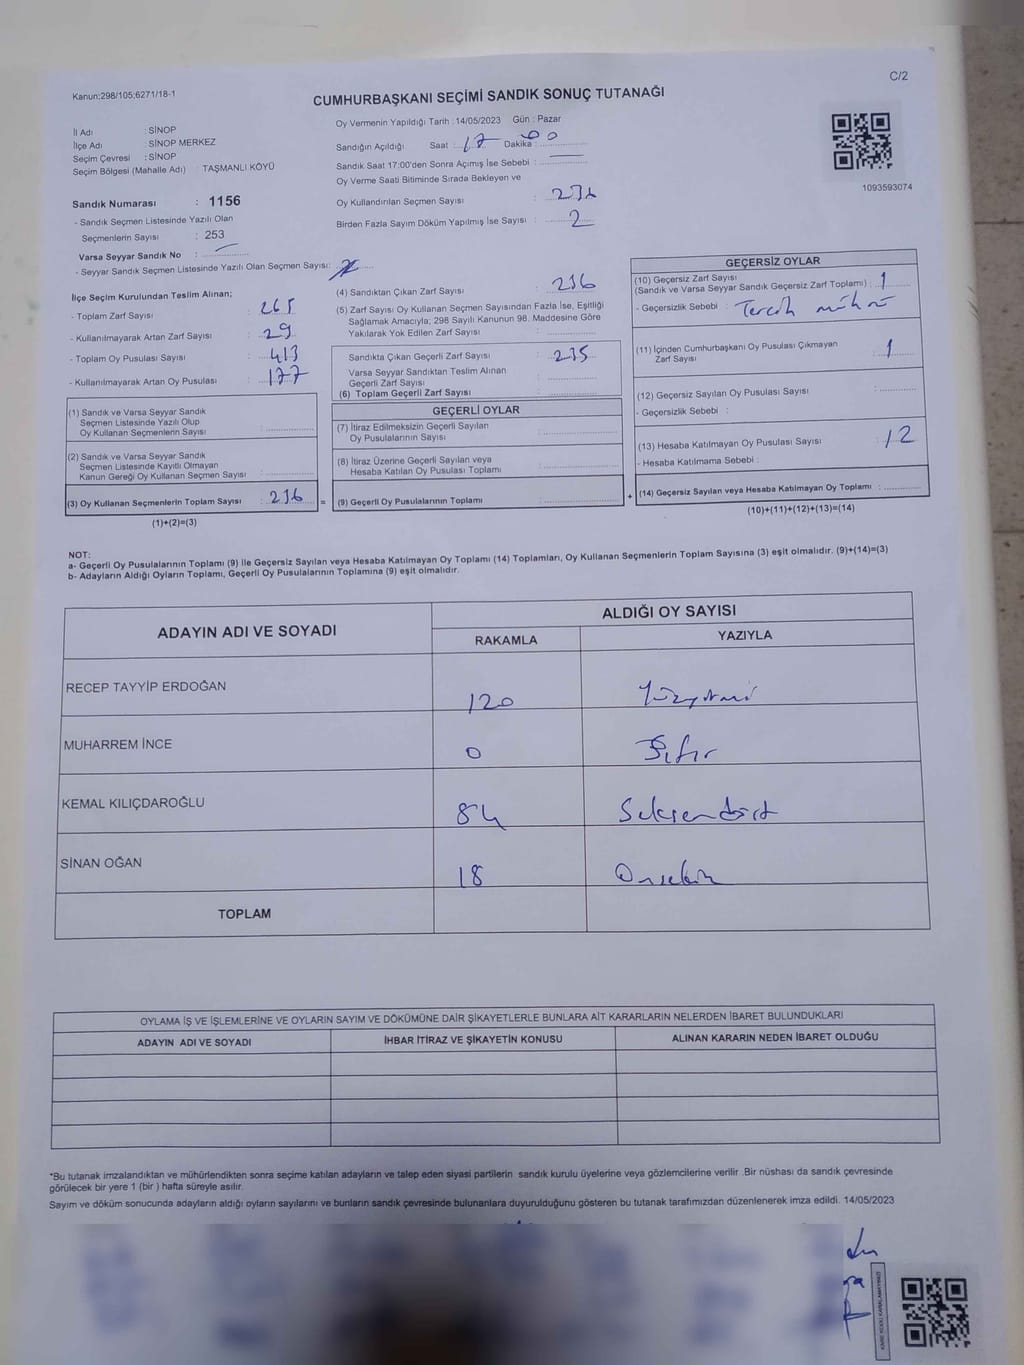 C/2
Kanun;298/105;6271/18-1
CUMHURBAŞKANI SEÇİMİ SANDIK SONUÇ TUTANAĞI
İl Adı : SİNOP
İlçe Adı : SİNOP MERKEZ
Seçim Çevresi : SİNOP
Seçim Bölgesi (Mahalle Adı) : TAŞMANLI KÖYÜ
Sandık Numarası : 1156
- Sandık Seçmen Listesinde Yazılı Olan
Seçmenlerin Sayısı : 253
Varsa Seyyar Sandık No :
- Seyyar Sandık Seçmen Listesinde Yazılı Olan Seçmen Sayısı:
Oy Vermenin Yapıldığı Tarih : 14/05/2023 Gün : Pazar
Sandığın Açıldığı Saat : 17 Dakika : 00
Sandık Saat 17:00'den Sonra Açılmış İse Sebebi :
Oy Verme Saati Bitiminde Sırada Bekleyen ve
Oy Kullandırılan Seçmen Sayısı :
Birden Fazla Sayım Döküm Yapılmış İse Sayısı : 2
1093593074
İlçe Seçim Kurulundan Teslim Alınan;
- Toplam Zarf Sayısı : 265
- Kullanılmayarak Artan Zarf Sayısı : 29
- Toplam Oy Pusulası Sayısı : 413
- Kullanılmayarak Artan Oy Pusulası : 177
(1) Sandık ve Varsa Seyyar Sandık
Seçmen Listesinde Yazılı Olup
Oy Kullanan Seçmenlerin Sayısı :
(2) Sandık ve Varsa Seyyar Sandık
Seçmen Listesinde Kayıtlı Olmayan
Kanun Gereği Oy Kullanan Seçmen Sayısı :
(3) Oy Kullanan Seçmenlerin Toplam Sayısı : 236 =
(1)+(2)=(3)
(4) Sandıktan Çıkan Zarf Sayısı : 236
(5) Zarf Sayısı Oy Kullanan Seçmen Sayısından Fazla İse, Eşitliği
Sağlamak Amacıyla; 298 Sayılı Kanunun 98. Maddesine Göre
Yakılarak Yok Edilen Zarf Sayısı :
Sandıkta Çıkan Geçerli Zarf Sayısı : 235
Varsa Seyyar Sandıktan Teslim Alınan
Geçerli Zarf Sayısı :
(6) Toplam Geçerli Zarf Sayısı :
GEÇERLİ OYLAR
(7) İtiraz Edilmeksizin Geçerli Sayılan
Oy Pusulalarının Sayısı :
(8) İtiraz Üzerine Geçerli Sayılan veya
Hesaba Katılan Oy Pusulası Toplamı :
(9) Geçerli Oy Pusulalarının Toplamı : +
GEÇERSİZ OYLAR
(10) Geçersiz Zarf Sayısı
(Sandık ve Varsa Seyyar Sandık Geçersiz Zarf Toplamı) : 1
- Geçersizlik Sebebi : Tercih mührü
(11) İçinden Cumhurbaşkanı Oy Pusulası Çıkmayan
Zarf Sayısı : 1
(12) Geçersiz Sayılan Oy Pusulası Sayısı :
- Geçersizlik Sebebi :
(13) Hesaba Katılmayan Oy Pusulası Sayısı : 12
- Hesaba Katılmama Sebebi :
(14) Geçersiz Sayılan veya Hesaba Katılmayan Oy Toplamı :
(10)+(11)+(12)+(13)=(14)
NOT:
a- Geçerli Oy Pusulalarının Toplamı (9) ile Geçersiz Sayılan veya Hesaba Katılmayan Oy Toplamı (14) Toplamları, Oy Kullanan Seçmenlerin Toplam Sayısına (3) eşit olmalıdır. (9)+(14)=(3)
b- Adayların Aldığı Oyların Toplamı, Geçerli Oy Pusulalarının Toplamına (9) eşit olmalıdır.
ADAYIN ADI VE SOYADI
ALDIĞI OY SAYISI
RAKAMLA YAZIYLA
RECEP TAYYİP ERDOĞAN 120 Yüzyirmi
MUHARREM İNCE 0 Sıfır
KEMAL KILIÇDAROĞLU 84 Seksendört
SİNAN OĞAN 18 Onsekiz
TOPLAM
OYLAMA İŞ VE İŞLEMLERİNE VE OYLARIN SAYIM VE DÖKÜMÜNE DAİR ŞİKAYETLERLE BUNLARA AİT KARARLARIN NELERDEN İBARET BULUNDUKLARI
ADAYIN ADI VE SOYADI İHBAR İTİRAZ VE ŞİKAYETİN KONUSU ALINAN KARARIN NEDEN İBARET OLDUĞU
*Bu tutanak imzalandıktan ve mühürlendikten sonra seçime katılan adayların ve talep eden siyasi partilerin sandık kurulu üyelerine veya gözlemcilerine verilir. Bir nüshası da sandık çevresinde
görülecek bir yere 1 (bir ) hafta süreyle asılır.
Sayım ve döküm sonucunda adayların aldığı oyların sayılarını ve bunların sandık çevresinde bulunanlara duyurulduğunu gösteren bu tutanak tarafımızdan düzenlenerek imza edildi. 14/05/2023
KARE KODU KARALAMAYINIZ!